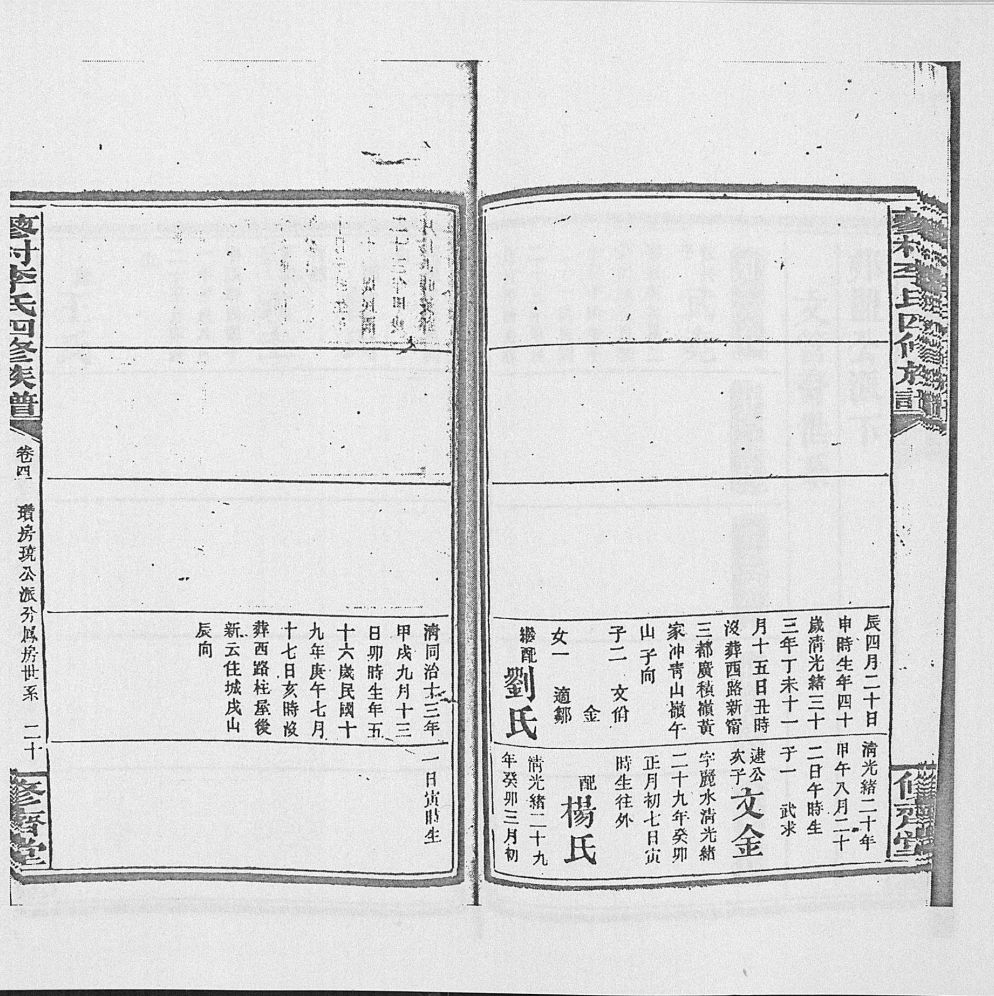 村李氏四修族譜
修齊堂
辰四月二十日
申時生年四十
歲清光緒三十
三年丁未十一
月十五日丑時
沒葬西路新甯
三都廣積嶺黃
家冲青山嶺午
山子向
子二 文佾
金
女一 適鄒
繼配劉氏
清光緒二十年
甲午八月二十
二日午時生
子一 武求
逮公
亥子文金
字麗水清光緒
二十九年癸卯
正月初七日寅
時生往外
配楊氏
清光緒二十九
年癸卯三月初
清同治十三年
甲戌九月十三
日卯時生年五
十六歲民國十
九年庚午七月
十七日亥時歿
葬西路柱屋後
新云住城戌山
辰向
一日寅時生
村李氏四修族譜
卷四
瓚房琉公派分鳳房世系
二十
修齊堂